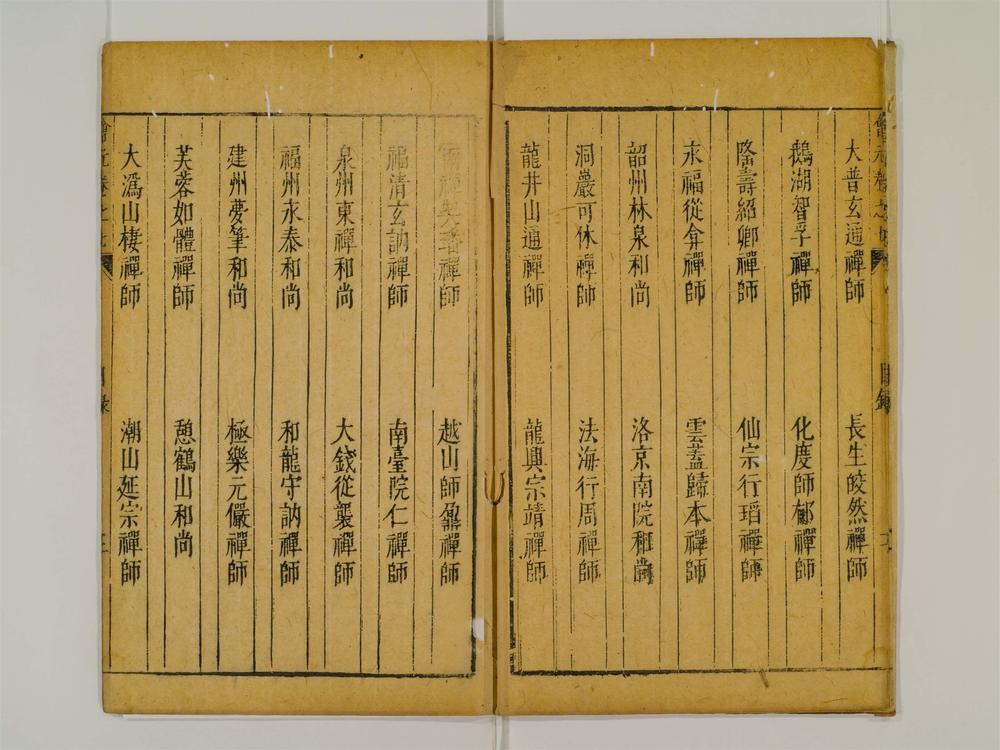 大普玄通禪師 長生皎然禪師
鵝湖智孚禪師 化度師郁禪師
隆壽紹卿禪師 仙宗行瑫禪師
永福從弇禪師 雲蓋歸本禪師
韶州林泉和尚 洛京南院和尚
洞巖可休禪師 法海行周禪師
龍井山通禪師 龍興宗靖禪師
禪師 越山師鼐禪師
福清玄訥禪師 南臺院仁禪師
泉州東禪和尚 大錢從襲禪師
福州永泰和尚 和龍守訥禪師
建州夢筆和尚 極樂元儼禪師
芙蓉如體禪師 憩鶴山和尚
大溈山棲禪師 潮山延宗禪師
目錄